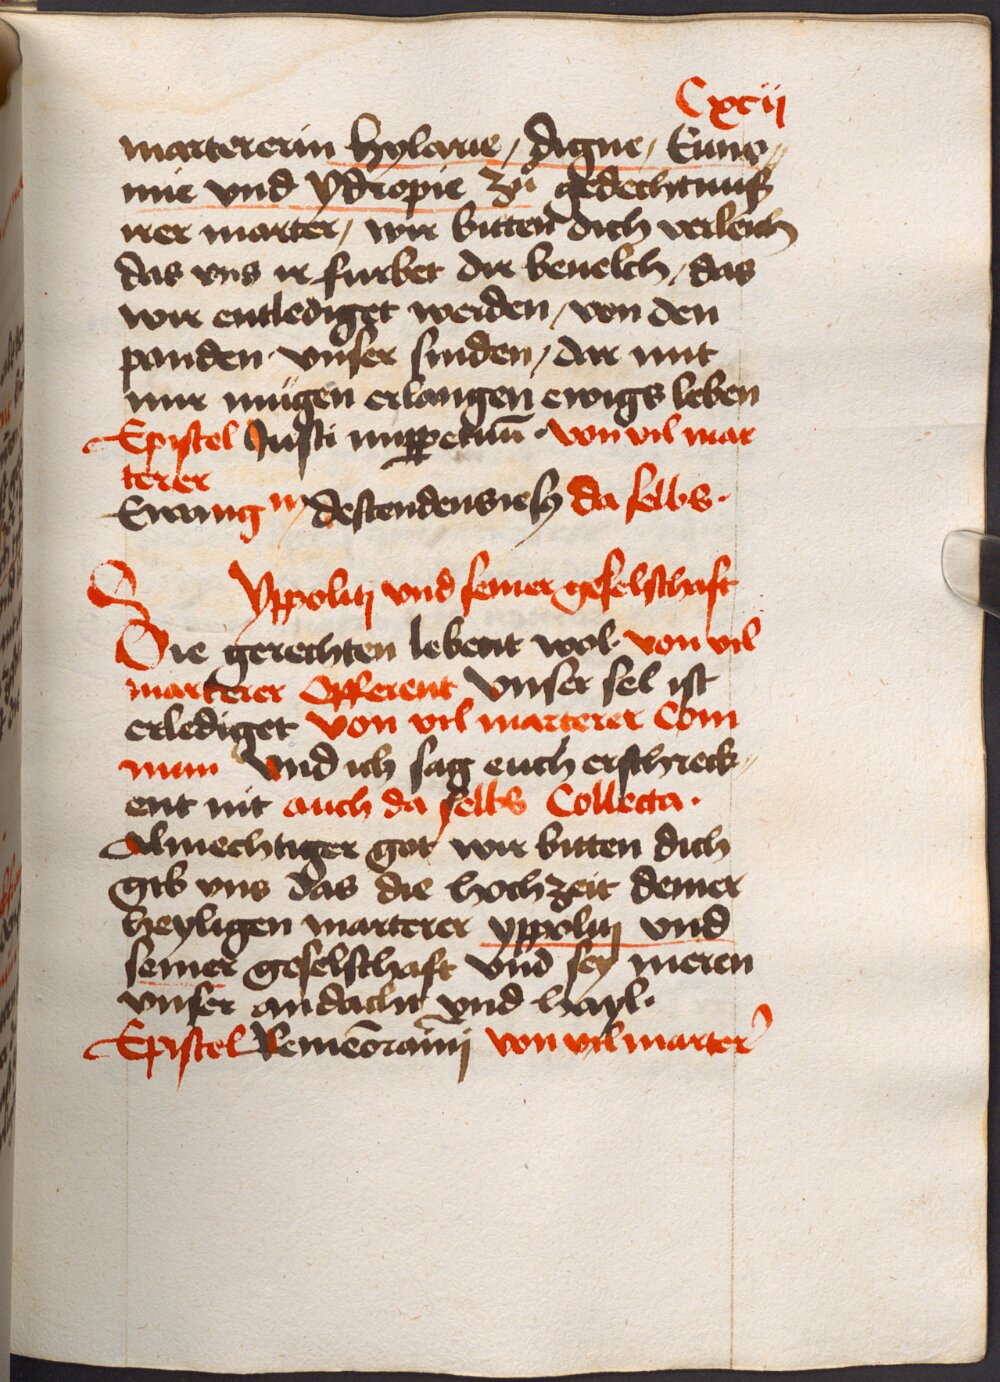 Cxcij
martererin hylarie / digne / Euno„
mie vnd ydropie zů gedechtnuß
irer marter / wir bitten dich verleich
das vns ir furbet dir beuelch / das
wir entlediget werden / von den
panden vnser sunden / dar mit
mir mügen erlangen ewigs leben
Epistel Justi imꝑpetuū · von vil mar
terer
Ewang descendens iesꝰ da selbs ·
Yppolitj vnd seiner geselschaft
Die gerechten lebent wol von vil
marterer Offerent Vnser sel ist
erlediget von vil marterer Com
mun Vnd ich sag euch erschreck„
ent nit auch da selbs Collecta ·
Almechtiger got wir bitten dich
gib vns das die hochzeit deiner
heyligen marterer yppolitj vnd
seiner geselschaft vnd sey meren
vnser andacht vnd hayl ·
Epistel von vil marter